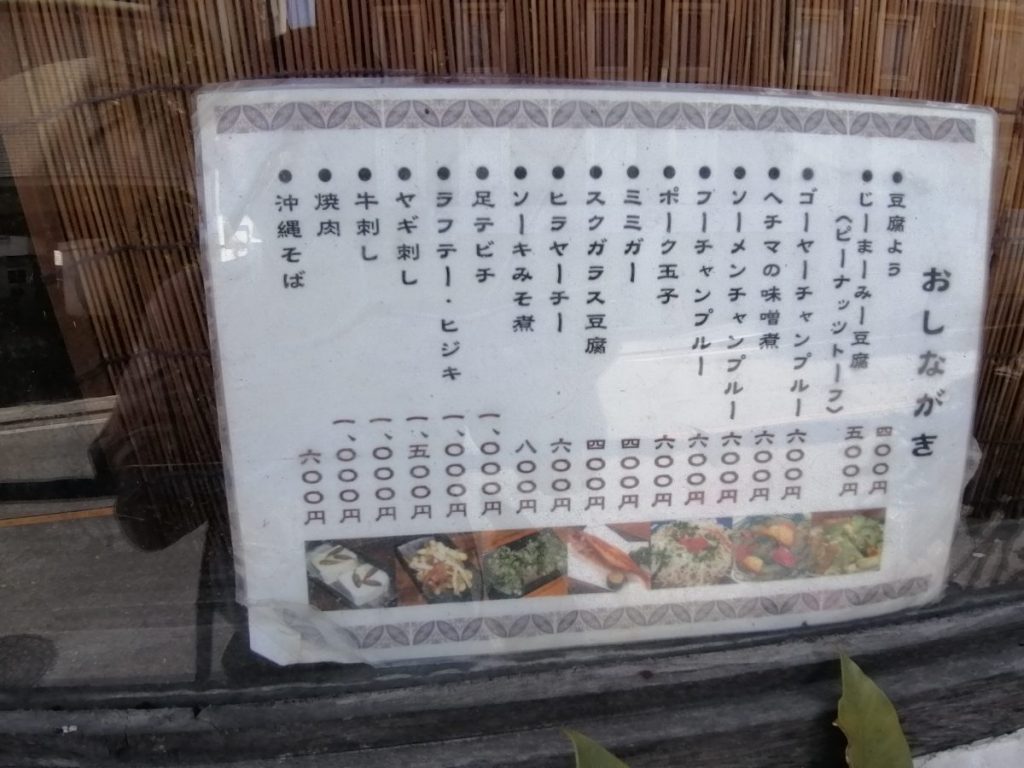 おしながき
●豆腐よう 四〇〇円
●じーまーみー豆腐
(ピーナッツトーフ) 五〇〇円
●ゴーヤーチャンプルー 六〇〇円
●ヘチマの味噌煮 六〇〇円
●ソーメンチャンプルー 六〇〇円
●プーチャンプルー 六〇〇円
●ポーク玉子 六〇〇円
●ミミガー 四〇〇円
●スクガラス豆腐 四〇〇円
●ヒラヤーチー 六〇〇円
●ソーキみそ煮 八〇〇円
●足テビチ 一、〇〇〇円
●ラフテー・ヒジキ 一、〇〇〇円
●ヤギ刺し 一、五〇〇円
●牛刺し 一、〇〇〇円
●焼肉 一、〇〇〇円
●沖縄そば 六〇〇円